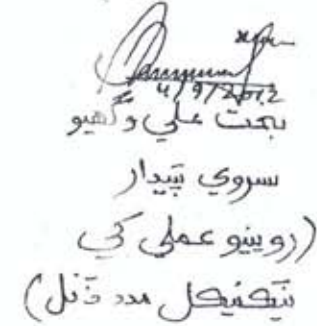 4/9/2012
بخت علي وگهيو
سروي تپيدار
(روينيو عملي کي
ٽيڪنيڪل مدد ڏنل)